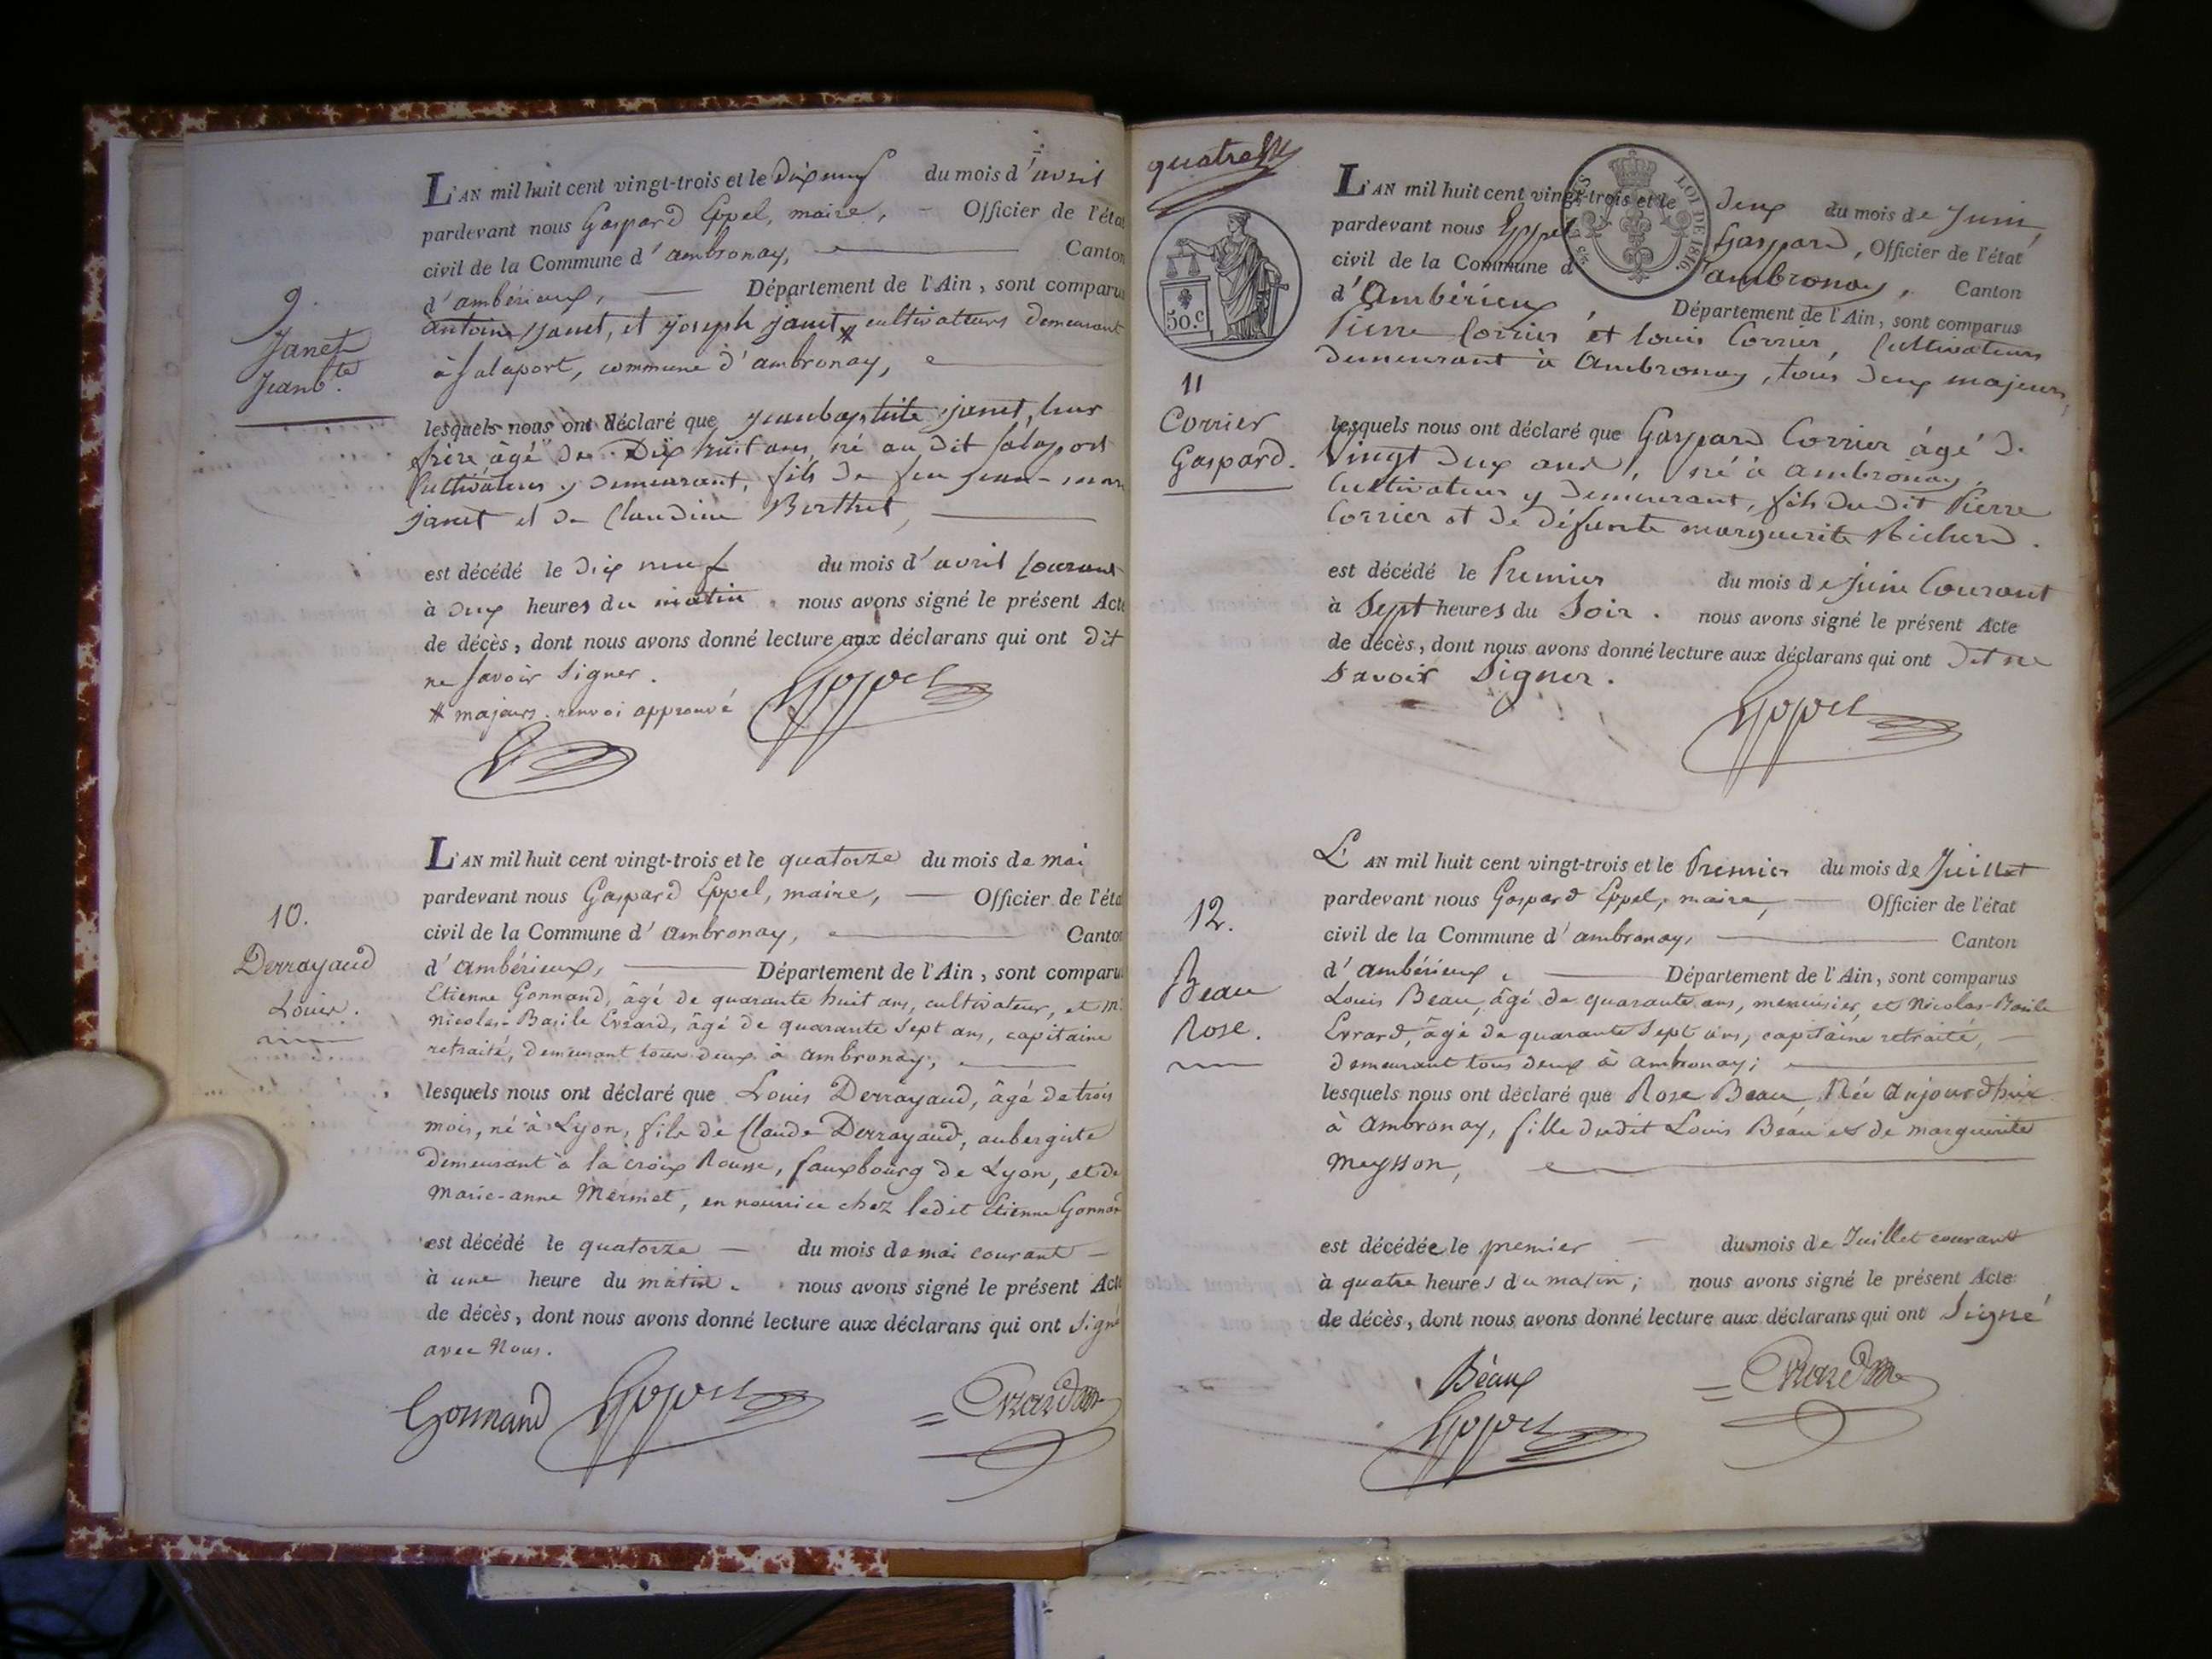 L'AN mil huit cent vingt-trois et le Dix neuf du mois d'avril
pardevant nous Gaspard Eppel, maire, Officier de l'éta
civil de la Commune d'ambronay, Canton
d'ambérieux, Département de l'Ain, sont comparus
9.
Janet
Jean bte.
antoine Janet, et joseph janet # cultivateurs demeurant
à Salaport, commune d'ambronay,
lesquels nous ont déclaré que jeanbaptiste janet, leur
frère âgé de Dix huit ans, né au dit Salaport
Cultivateur y demeurant, fils de feu jean
janet et de Claudine Berthet,
est décédé le dix neuf du mois d'avril courant
à deux heures du matin. nous avons signé le présent Acte
de décès, dont nous avons donné lecture aux déclarans qui ont dit
ne savoir signer.
# majeurs. renvoi approuvé
Eppel
L'AN mil huit cent vingt-trois et le quatorze du mois de mai
pardevant nous Gaspard Eppel, maire, Officier de l'éta
civil de la Commune d'ambronay, Canton
d'ambérieux, Département de l'Ain, sont comparu
10.
Derrayaud
Louis.
Etienne Gonnand, âgé de quarante huit ans, cultivateur, et M.
Nicolas-Basile Evrard, âgé de quarante sept ans, capitaine
retraité, demeurant tous deux à ambronay;
lesquels nous ont déclaré que Louis Derrayaud, âgé de trois
mois, né à Lyon, fils de Claude Derrayaud, aubergiste
demeurant à la croix Rousse, fauxbourg de Lyon, et de
Marie-anne Mermet, en nourrice chez ledit Etienne Gonnan
est décédé le quatorze du mois de mai courant
à une heure du matin. nous avons signé le présent Acte
de décès, dont nous avons donné lecture aux déclarans qui ont signé
avec nous.
Gonnand Eppel Evrard
quatre
LOI DE 1816.
50.c
L'AN mil huit cent vingt-trois et le deux du mois de Juin,
pardevant nous Eppel Gaspard, Officier de l'état
civil de la Commune d'ambronay, Canton
d'Ambérieux, Département de l'Ain, sont comparus
11
Corrier
Gaspard.
Pierre Corrier et Louis Corrier, Cultivateurs
demeurant à Ambronay, tous deux majeurs,
lesquels nous ont déclaré que Gaspard Corrier âgé de
Vingt deux ans, né à ambronay,
Cultivateur y demeurant, fils du dit Pierre
Corrier et de défunte marguerite Richerd.
est décédé le Premier du mois de Juin Courant
à Sept heures du Soir. nous avons signé le présent Acte
de décès, dont nous avons donné lecture aux déclarans qui ont dit ne
savoir signer.
Eppel
L'AN mil huit cent vingt-trois et le Premier du mois de Juillet
pardevant nous Gaspard Eppel, maire, Officier de l'état
civil de la Commune d'ambronay, Canton
d'ambérieux, Département de l'Ain, sont comparus
12.
Beau
Rose.
Louis Beau, âgé de quarante ans, menuisier, et Nicolas-Basile
Evrard, âgé de quarante sept ans, capitaine retraité,
demeurant tous deux à ambronay;
lesquels nous ont déclaré que Rose Beau, Née Aujourdhui
à Ambronay, fille dudit Louis Beau et de marguerite
meysson,
est décédée le premier du mois de Juillet courant
à quatre heures du matin; nous avons signé le présent Acte
de décès, dont nous avons donné lecture aux déclarans qui ont Signé
Béaux Evrard
Eppel